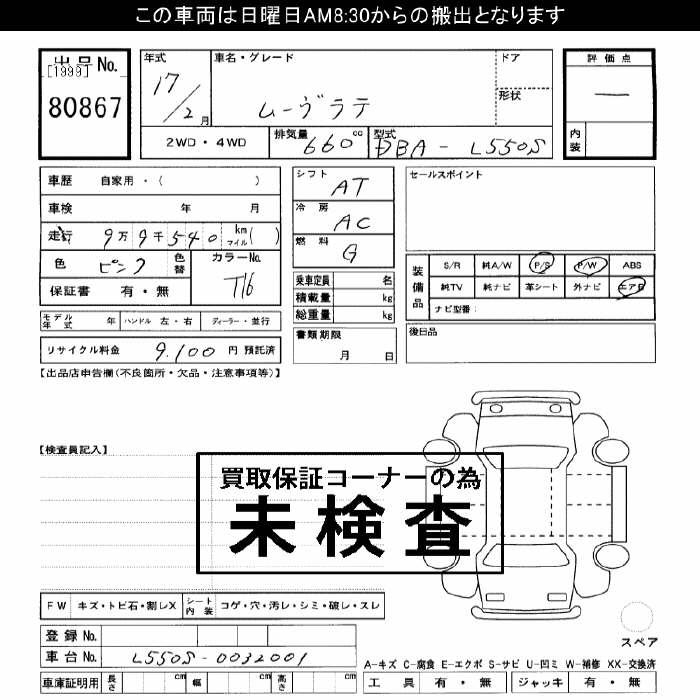 この車両は日曜日AM8:30からの搬出となります
出品No.
[1999]
80867
年式
17/2月
車名・グレード
ムーヴラテ
ドア
形状
評価点
―
内装
2WD・4WD
排気量 660 cc
型式 DBA-L550S
車歴 自家用・( )
車検 年 月
走行 9万9千540 km マイル( )
色 ピンク 色替
カラーNo. T16
保証書 有・無
シフト AT
冷房 AC
燃料 G
乗車定員 名
積載量 kg
総重量 kg
書類期限 月 日
セールスポイント
装備品
S/R 純A/W P/S P/W ABS
純TV 純ナビ 革シート 外ナビ エアB
ナビ型番:
後日品
モデル年式 年 ハンドル 左・右 ディーラー・並行
リサイクル料金 9,100 円 預託済
【出品店申告欄(不良箇所・欠品・注意事項等)】
【検査員記入】
買取保証コーナーの為
未検査
FW キズ・トビ石・割レX シート内装 コゲ・穴・汚レ・シミ・破レ・スレ
登録No.
車台No. L550S-0032001
車庫証明用 長さ cm 幅 cm 高さ cm
スペア
A-キズ C-腐食 E-エクボ S-サビ U-凹ミ W-補修 XX-交換済
工具 有・無 ジャッキ 有・無